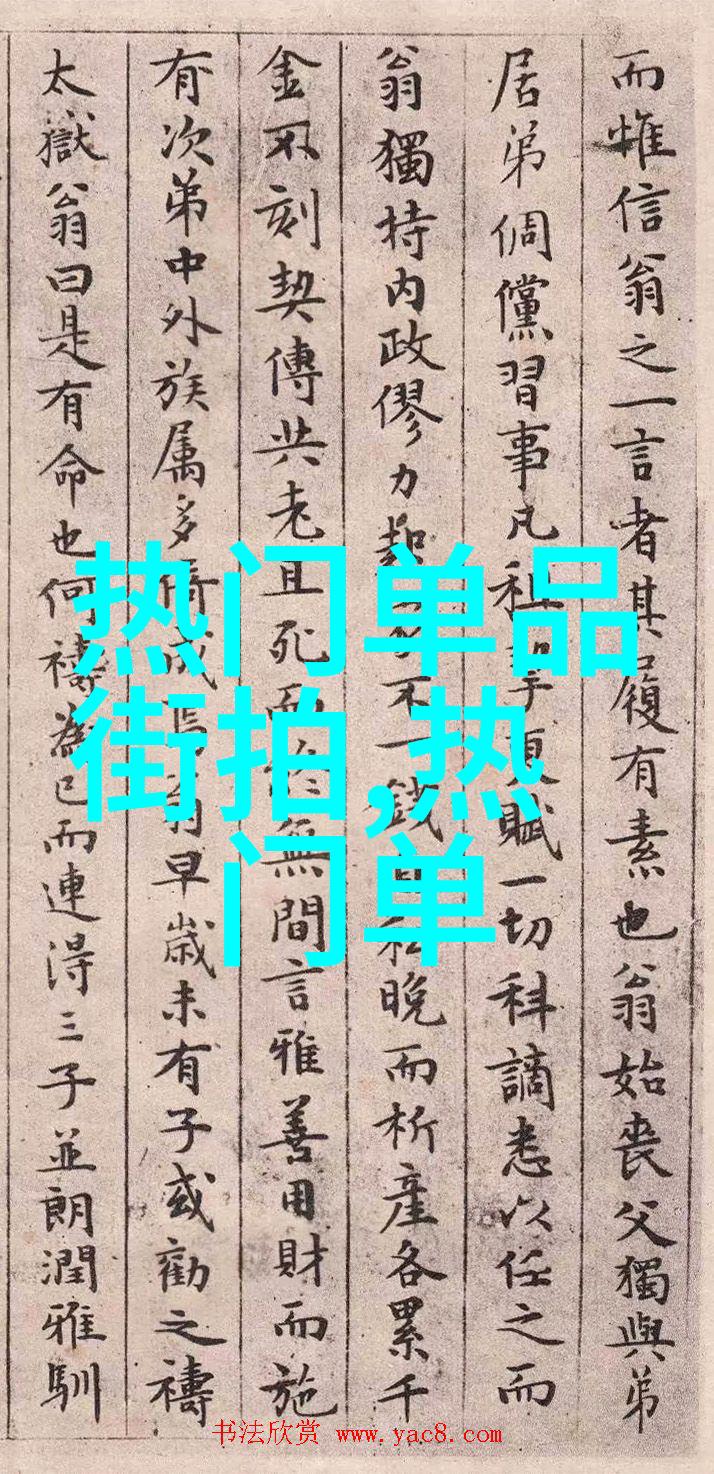 而惟信翁之一言者其履有素也翁始喪父獨與弟
居弟倜儻習事凡租更賦一切科謫悉以任之而
翁獨持内政僇力不一錢私晚而析產各累千
金不刻契傳共老且死而無間言雅善用財而施
有次第中外族属多成焉翁早歲未有子或勸之禱
太嶽翁曰是有命也何禱為已而連得三子並朗潤雅馴
热门单品
街拍,热
门单
书法欣赏 www.yac8.com